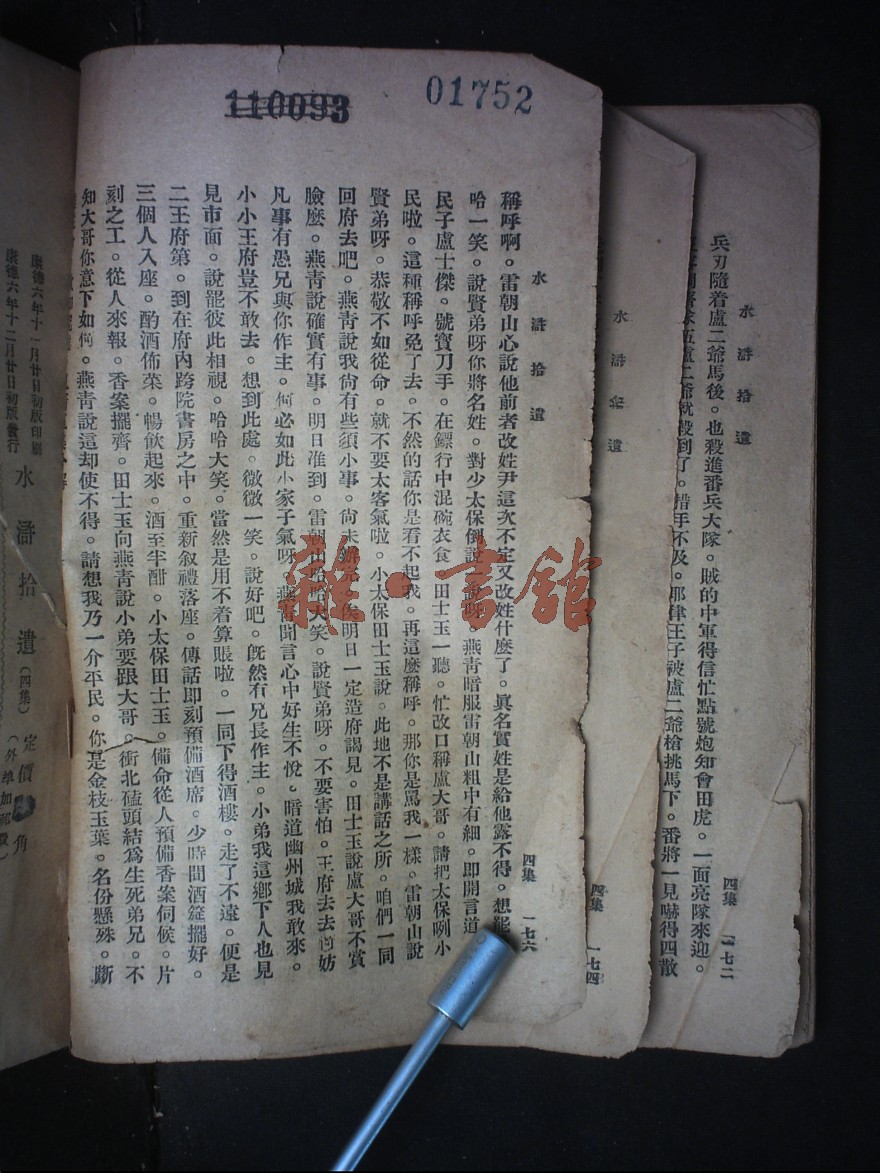 110093
01752
兵刃隨着盧二爺馬後。也殺進番兵大隊。賊的中軍得信忙點號炮知會田虎。一面亮隊來迎。
伍盧二爺就殺到了。措手不及。耶律王子被盧二爺槍挑馬下。番將一見嚇得四散
水滸拾遺 四集 一七二
水滸拾遺 四集 一七四
水滸拾遺 四集 一七六
稱呼啊。雷朝山心說他前者改姓尹這次不定又改姓什麼了。眞名實姓是給他露不得。想罷
哈一笑。說賢弟呀你將名姓。對少太保倒說一說呀。燕青暗服雷朝山粗中有細。即開言道
民子盧士傑。號寶刀手。在鏢行中混碗衣食。田士玉一聽。忙改口稱盧大哥。請把太保咧小
民啦。這種稱呼免了去。不然的話你是看不起我。再這麼稱呼。那你是罵我一樣。雷朝山說
賢弟呀。恭敬不如從命。就不要太客氣啦。小太保田士玉說。此地不是講話之所。咱們一同
回府去吧。燕青說我尙有些須小事。尙未辦。俟明日一定造府謁見。田士玉說盧大哥不賞
臉麼。燕青說確實有事。明日準到。雷朝山哈哈大笑。說賢弟呀。不要害怕。王府去去尙妨
凡事有愚兄與你作主。何必如此小家子氣呀。燕青聞言心中好生不悅。暗道幽州城我敢來。
小小王府豈不敢去。想到此處。微微一笑。說好吧。既然有兄長作主。小弟我這鄉下人也見
見市面。說罷彼此相視。哈哈大笑。當然是用不着算賬啦。一同下得酒樓。走了不遠。便是
二王府第。到在府內跨院書房之中。重新叙禮落座。傳話即刻預備酒席。少時間酒筵擺好。
三個人入座。酌酒佈菜。暢飲起來。酒至半酣。小太保田士玉。備命從人預備香案伺候。片
刻之工。從人來報。香案擺齊。田士玉向燕青說小弟要跟大哥。衝北磕頭結爲生死弟兄。不
知大哥你意下如何。燕青說這却使不得。請想我乃一介平民。你是金枝玉葉。名份懸殊。斷
康德六年十一月廿日初版印刷
康德六年十二月廿日初版發行
水滸拾遺(四集)定價 角
(外埠加郵費)
雜·書館